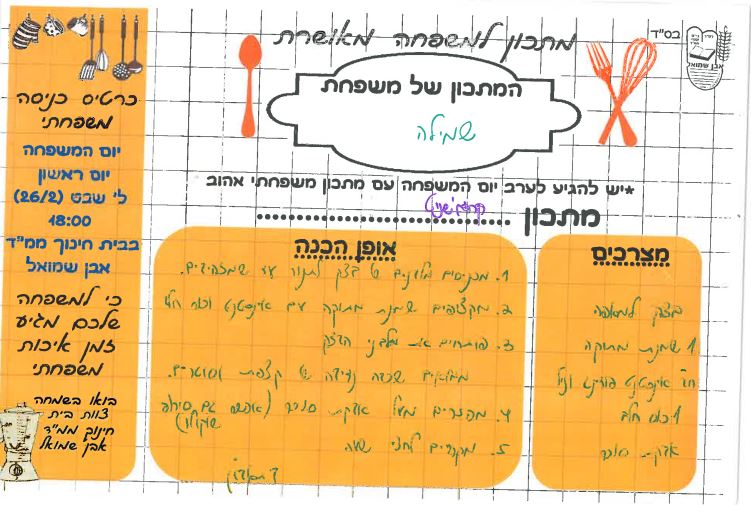 בס"ד
אבן שמואל
מתכון למשפחה מאושרת
המתכון של משפחת
שמילה
*יש להגיע לערב יום המשפחה עם מתכון משפחתי אהוב
מתכון
מצרכים
בצק
1 שמנת מתוקה
אינסטנט פודינג וניל
1 כוס חלב
אבקת סוכר
אופן הכנה
1. מכניסים מלבנים של בצק לתנור עד שמזהיבים.
2. מקציפים שמנת מתוקה עם אינסטנט וכוס חלב
3. פותחים את מלבני הבצק
ממלאים שכבה נדיבה של קצפת וסוגרים.
4. מפזרים מעל אבקת סוכר (אפשר גם סירופ
שוקולד)
5. מקררים לחצי שעה
בתאבון
כרטיס כניסה
משפחתי
יום המשפחה
יום ראשון
ל' שבט (26/2)
18:00
בבית חינוך ממ"ד
אבן שמואל
כי למשפחה
שלכם מגיע
זמן איכות
משפחתי
בואו בשמחה
צוות בית
חינוך ממ"ד
אבן שמואל